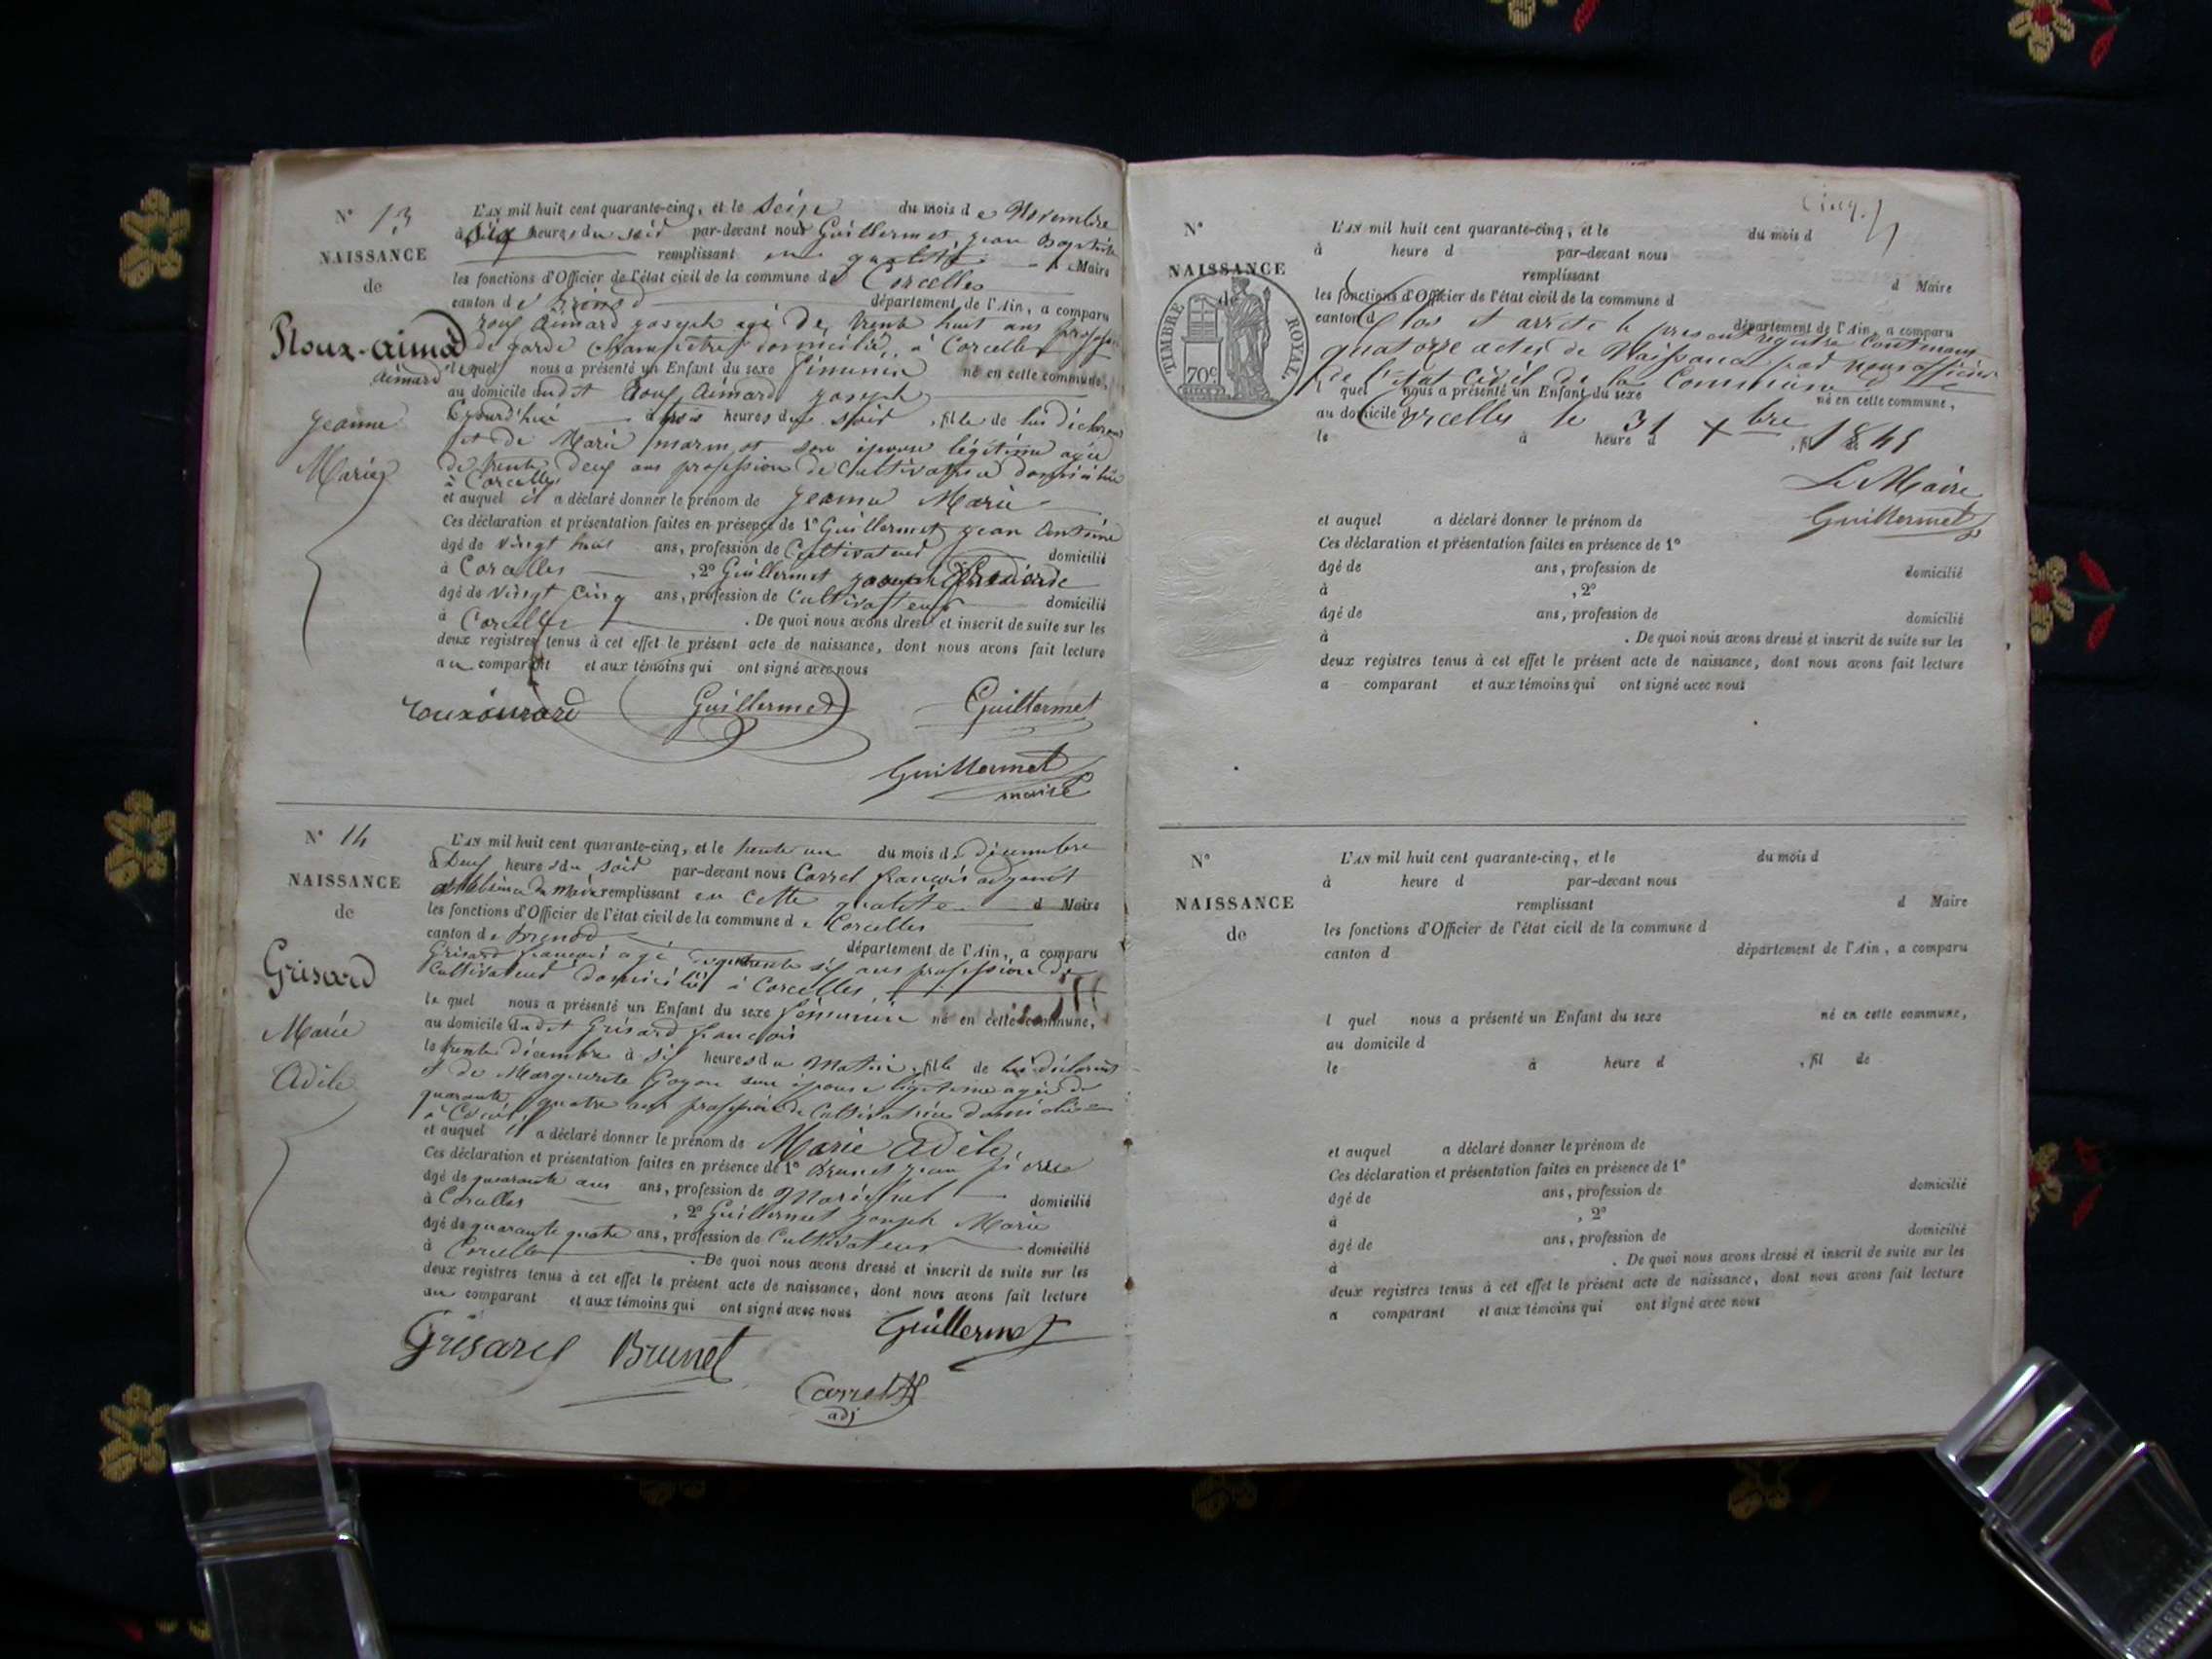 N° 13
NAISSANCE
de
Roux-aimard
aimard
Jeanne
Marie
L'AN mil huit cent quarante-cinq, et le Seize du mois de Novembre
à Six heures du soir par-devant nous Guillermet, jean Baptiste
remplissant en qualité d Maire
les fonctions d'Officier de l'état civil de la commune de Corcelles
canton de Brenod département de l'Ain, a comparu
roux aimard joseph agé de trente huit ans profession
de garde champêtre domicilié à Corcelles
lequel nous a présenté un Enfant du sexe féminin né en cette commune,
au domicile dudit roux aimard joseph
aujourd'hui à trois heures du soir, fille de lui déclarant
et de Marie marmot son épouse légitime agée
de trente deux ans profession de cultivatrice domiciliée
à Corcelles
et auquel il a déclaré donner le prénom de jeanne Marie
Ces déclaration et présentation faites en présence de 1° Guillermet jean antoine
âgé de vingt huit ans, profession de Cultivateur domicilié
à Corcelles , 2° Guillermet joseph
âgé de vingt cinq ans, profession de Cultivateur domicilié
à Corcelles . De quoi nous avons dressé et inscrit de suite sur les
deux registres tenus à cet effet le présent acte de naissance, dont nous avons fait lecture
au comparant et aux témoins qui ont signé avec nous
rouxaimard Guillermet Guillermet
Guillermet
maire
N° 14
NAISSANCE
de
Grisard
Marie
Adèle
L'AN mil huit cent quarante-cinq, et le trente un du mois de décembre
à Deux heures du soir par-devant nous Carrel françois adjoint
du Maire remplissant en cette qualité d Maire
les fonctions d'Officier de l'état civil de la commune de Corcelles
canton de brenod département de l'Ain, a comparu
Grisard françois agé quarante six ans profession de
Cultivateur domicilié à Corcelles
le quel nous a présenté un Enfant du sexe féminin né en cette commune,
au domicile dudit Grisard françois
le trente décembre à six heures du matin, fille de lui déclarant
et de Marguerite Goyon son épouse légitime agée de
quarante quatre ans profession de Cultivatrice domiciliée
à Corcelles
et auquel il a déclaré donner le prénom de Marie Adèle
Ces déclaration et présentation faites en présence de 1° Brunet jean pierre
âgé de quarante ans ans, profession de Maréchal domicilié
à Corcelles , 2° Guillermet joseph Marie
âgé de quarante quatre ans, profession de Cultivateur domicilié
à Corcelles . De quoi nous avons dressé et inscrit de suite sur les
deux registres tenus à cet effet le présent acte de naissance, dont nous avons fait lecture
au comparant et aux témoins qui ont signé avec nous
Grisard Brunet Guillermet
Carrel
adj
Cinq.
N°
NAISSANCE
de
TIMBRE ROYAL.
70c
L'AN mil huit cent quarante-cinq, et le du mois d
à heure d par-devant nous
remplissant d Maire
les fonctions d'Officier de l'état civil de la commune d
canton d département de l'Ain, a comparu
Clos et arrêté le présent registre contenant
quatorze actes de Naissance par nous officier
de l'état civil de la Commune de
l quel nous a présenté un Enfant du sexe né en cette commune,
au domicile d
Corcelles le 31 Xbre 1845
le à heure d , fil de
Le Maire
Guillermet
et auquel a déclaré donner le prénom de
Ces déclaration et présentation faites en présence de 1°
âgé de ans, profession de domicilié
à , 2°
âgé de ans, profession de domicilié
à . De quoi nous avons dressé et inscrit de suite sur les
deux registres tenus à cet effet le présent acte de naissance, dont nous avons fait lecture
a comparant et aux témoins qui ont signé avec nous
N°
NAISSANCE
de
L'AN mil huit cent quarante-cinq, et le du mois d
à heure d par-devant nous
remplissant d Maire
les fonctions d'Officier de l'état civil de la commune d
canton d département de l'Ain, a comparu
l quel nous a présenté un Enfant du sexe né en cette commune,
au domicile d
le à heure d , fil de
et auquel a déclaré donner le prénom de
Ces déclaration et présentation faites en présence de 1°
âgé de ans, profession de domicilié
à , 2°
âgé de ans, profession de domicilié
à . De quoi nous avons dressé et inscrit de suite sur les
deux registres tenus à cet effet le présent acte de naissance, dont nous avons fait lecture
a comparant et aux témoins qui ont signé avec nous